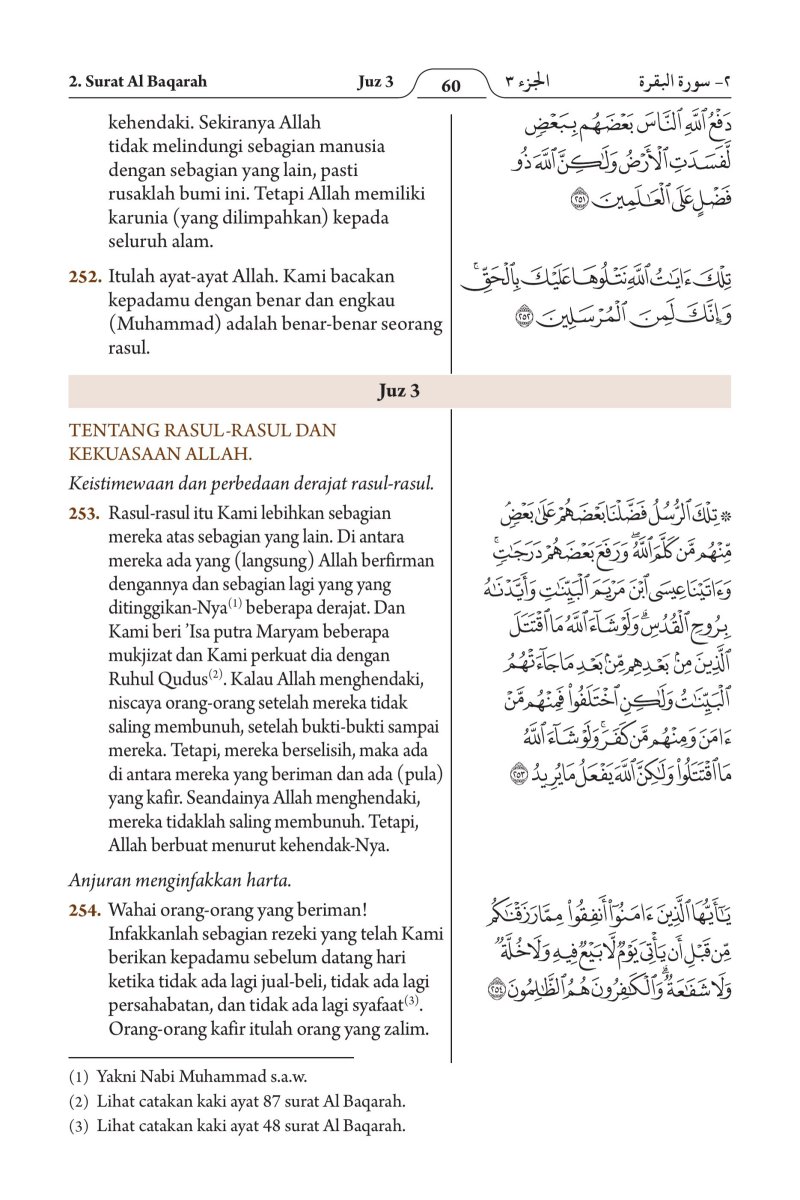 2. Surat Al Baqarah Juz 3 60 الجزء ٣ ٢- سورة البقرة
kehendaki. Sekiranya Allah
tidak melindungi sebagian manusia
dengan sebagian yang lain, pasti
rusaklah bumi ini. Tetapi Allah memiliki
karunia (yang dilimpahkan) kepada
seluruh alam.
دَفْعُ ٱللَّهِ ٱلنَّاسَ بَعْضَهُم بِبَعْضٍ
لَّفَسَدَتِ ٱلْأَرْضُ وَلَٰكِنَّ ٱللَّهَ ذُو
فَضْلٍ عَلَى ٱلْعَٰلَمِينَ ٢٥١
252. Itulah ayat-ayat Allah. Kami bacakan
kepadamu dengan benar dan engkau
(Muhammad) adalah benar-benar seorang
rasul.
تِلْكَ ءَايَٰتُ ٱللَّهِ نَتْلُوهَا عَلَيْكَ بِٱلْحَقِّ ۚ
وَإِنَّكَ لَمِنَ ٱلْمُرْسَلِينَ ٢٥٢
Juz 3
TENTANG RASUL-RASUL DAN
KEKUASAAN ALLAH.
Keistimewaan dan perbedaan derajat rasul-rasul.
253. Rasul-rasul itu Kami lebihkan sebagian
mereka atas sebagian yang lain. Di antara
mereka ada yang (langsung) Allah berfirman
dengannya dan sebagian lagi yang yang
ditinggikan-Nya(1) beberapa derajat. Dan
Kami beri ’Isa putra Maryam beberapa
mukjizat dan Kami perkuat dia dengan
Ruhul Qudus(2). Kalau Allah menghendaki,
niscaya orang-orang setelah mereka tidak
saling membunuh, setelah bukti-bukti sampai
mereka. Tetapi, mereka berselisih, maka ada
di antara mereka yang beriman dan ada (pula)
yang kafir. Seandainya Allah menghendaki,
mereka tidaklah saling membunuh. Tetapi,
Allah berbuat menurut kehendak-Nya.
۞ تِلْكَ ٱلرُّسُلُ فَضَّلْنَا بَعْضَهُمْ عَلَىٰ بَعْضٍ
مِّنْهُم مَّن كَلَّمَ ٱللَّهُ ۖ وَرَفَعَ بَعْضَهُمْ دَرَجَٰتٍ ۚ
وَءَاتَيْنَا عِيسَى ٱبْنَ مَرْيَمَ ٱلْبَيِّنَٰتِ وَأَيَّدْنَٰهُ
بِرُوحِ ٱلْقُدُسِ ۗ وَلَوْ شَآءَ ٱللَّهُ مَا ٱقْتَتَلَ
ٱلَّذِينَ مِنۢ بَعْدِهِم مِّنۢ بَعْدِ مَا جَآءَتْهُمُ
ٱلْبَيِّنَٰتُ وَلَٰكِنِ ٱخْتَلَفُوا۟ فَمِنْهُم مَّنْ
ءَامَنَ وَمِنْهُم مَّن كَفَرَ ۚ وَلَوْ شَآءَ ٱللَّهُ
مَا ٱقْتَتَلُوا۟ وَلَٰكِنَّ ٱللَّهَ يَفْعَلُ مَا يُرِيدُ ٢٥٣
Anjuran menginfakkan harta.
254. Wahai orang-orang yang beriman!
Infakkanlah sebagian rezeki yang telah Kami
berikan kepadamu sebelum datang hari
ketika tidak ada lagi jual-beli, tidak ada lagi
persahabatan, dan tidak ada lagi syafaat(3).
Orang-orang kafir itulah orang yang zalim.
يَٰٓأَيُّهَا ٱلَّذِينَ ءَامَنُوٓا۟ أَنفِقُوا۟ مِمَّا رَزَقْنَٰكُم
مِّن قَبْلِ أَن يَأْتِىَ يَوْمٌ لَّا بَيْعٌ فِيهِ وَلَا خُلَّةٌ
وَلَا شَفَٰعَةٌ ۗ وَٱلْكَٰفِرُونَ هُمُ ٱلظَّٰلِمُونَ ٢٥٤
(1) Yakni Nabi Muhammad s.a.w.
(2) Lihat catakan kaki ayat 87 surat Al Baqarah.
(3) Lihat catakan kaki ayat 48 surat Al Baqarah.